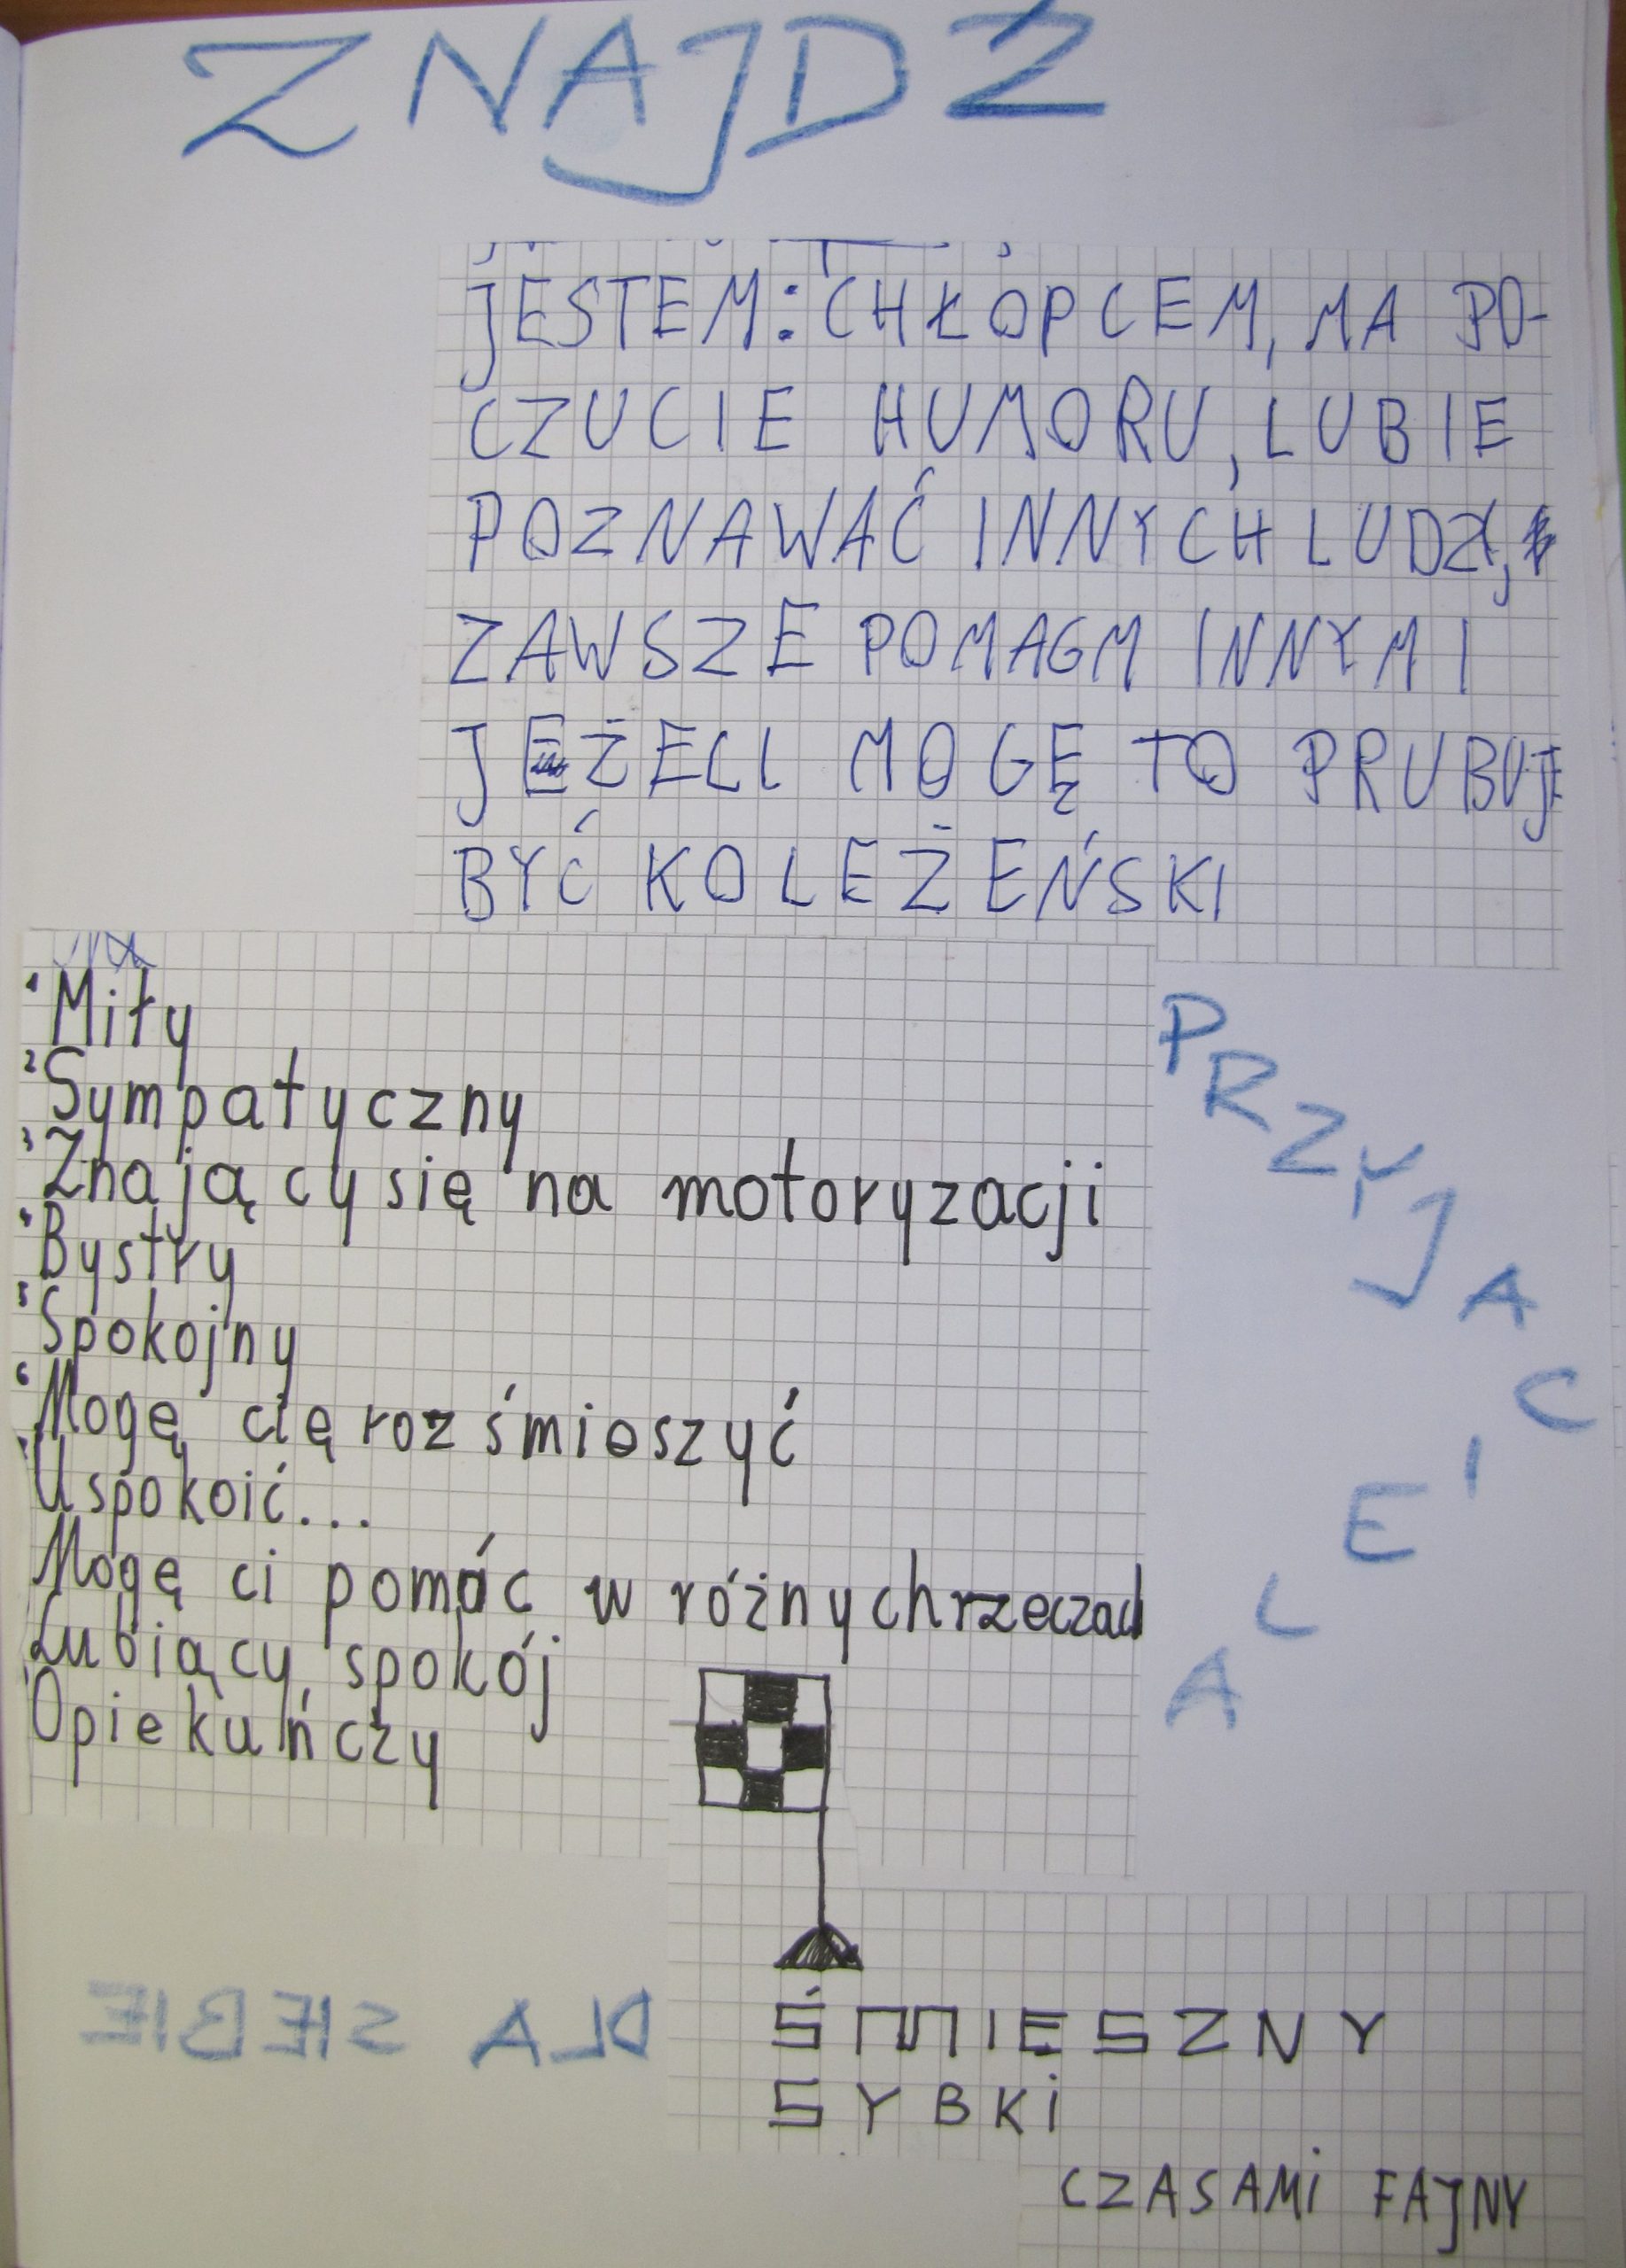 ZNAJDŹ
JESTEM: CHŁOPCEM, MA PO-
CZUCIE HUMORU, LUBIE
POZNAWAĆ INNYCH LUDZI,
ZAWSZE POMAGM INNYM I
JEŻELI MOGĘ TO PRUBUJE
BYĆ KOLEŻEŃSKI
1 Miły
2 Sympatyczny
3 Znający się na motoryzacji
4 Bystry
5 Spokojny
6 Mogę cię roz śmieszyć
Uspokoić...
Mogę ci pomóc w różnych rzeczach
Lubiący spokój
Opiekuńczy
PRZYJACIELA
DLA SIEBIE
ŚMIESZNY
SYBKI
CZASAMI FAJNY